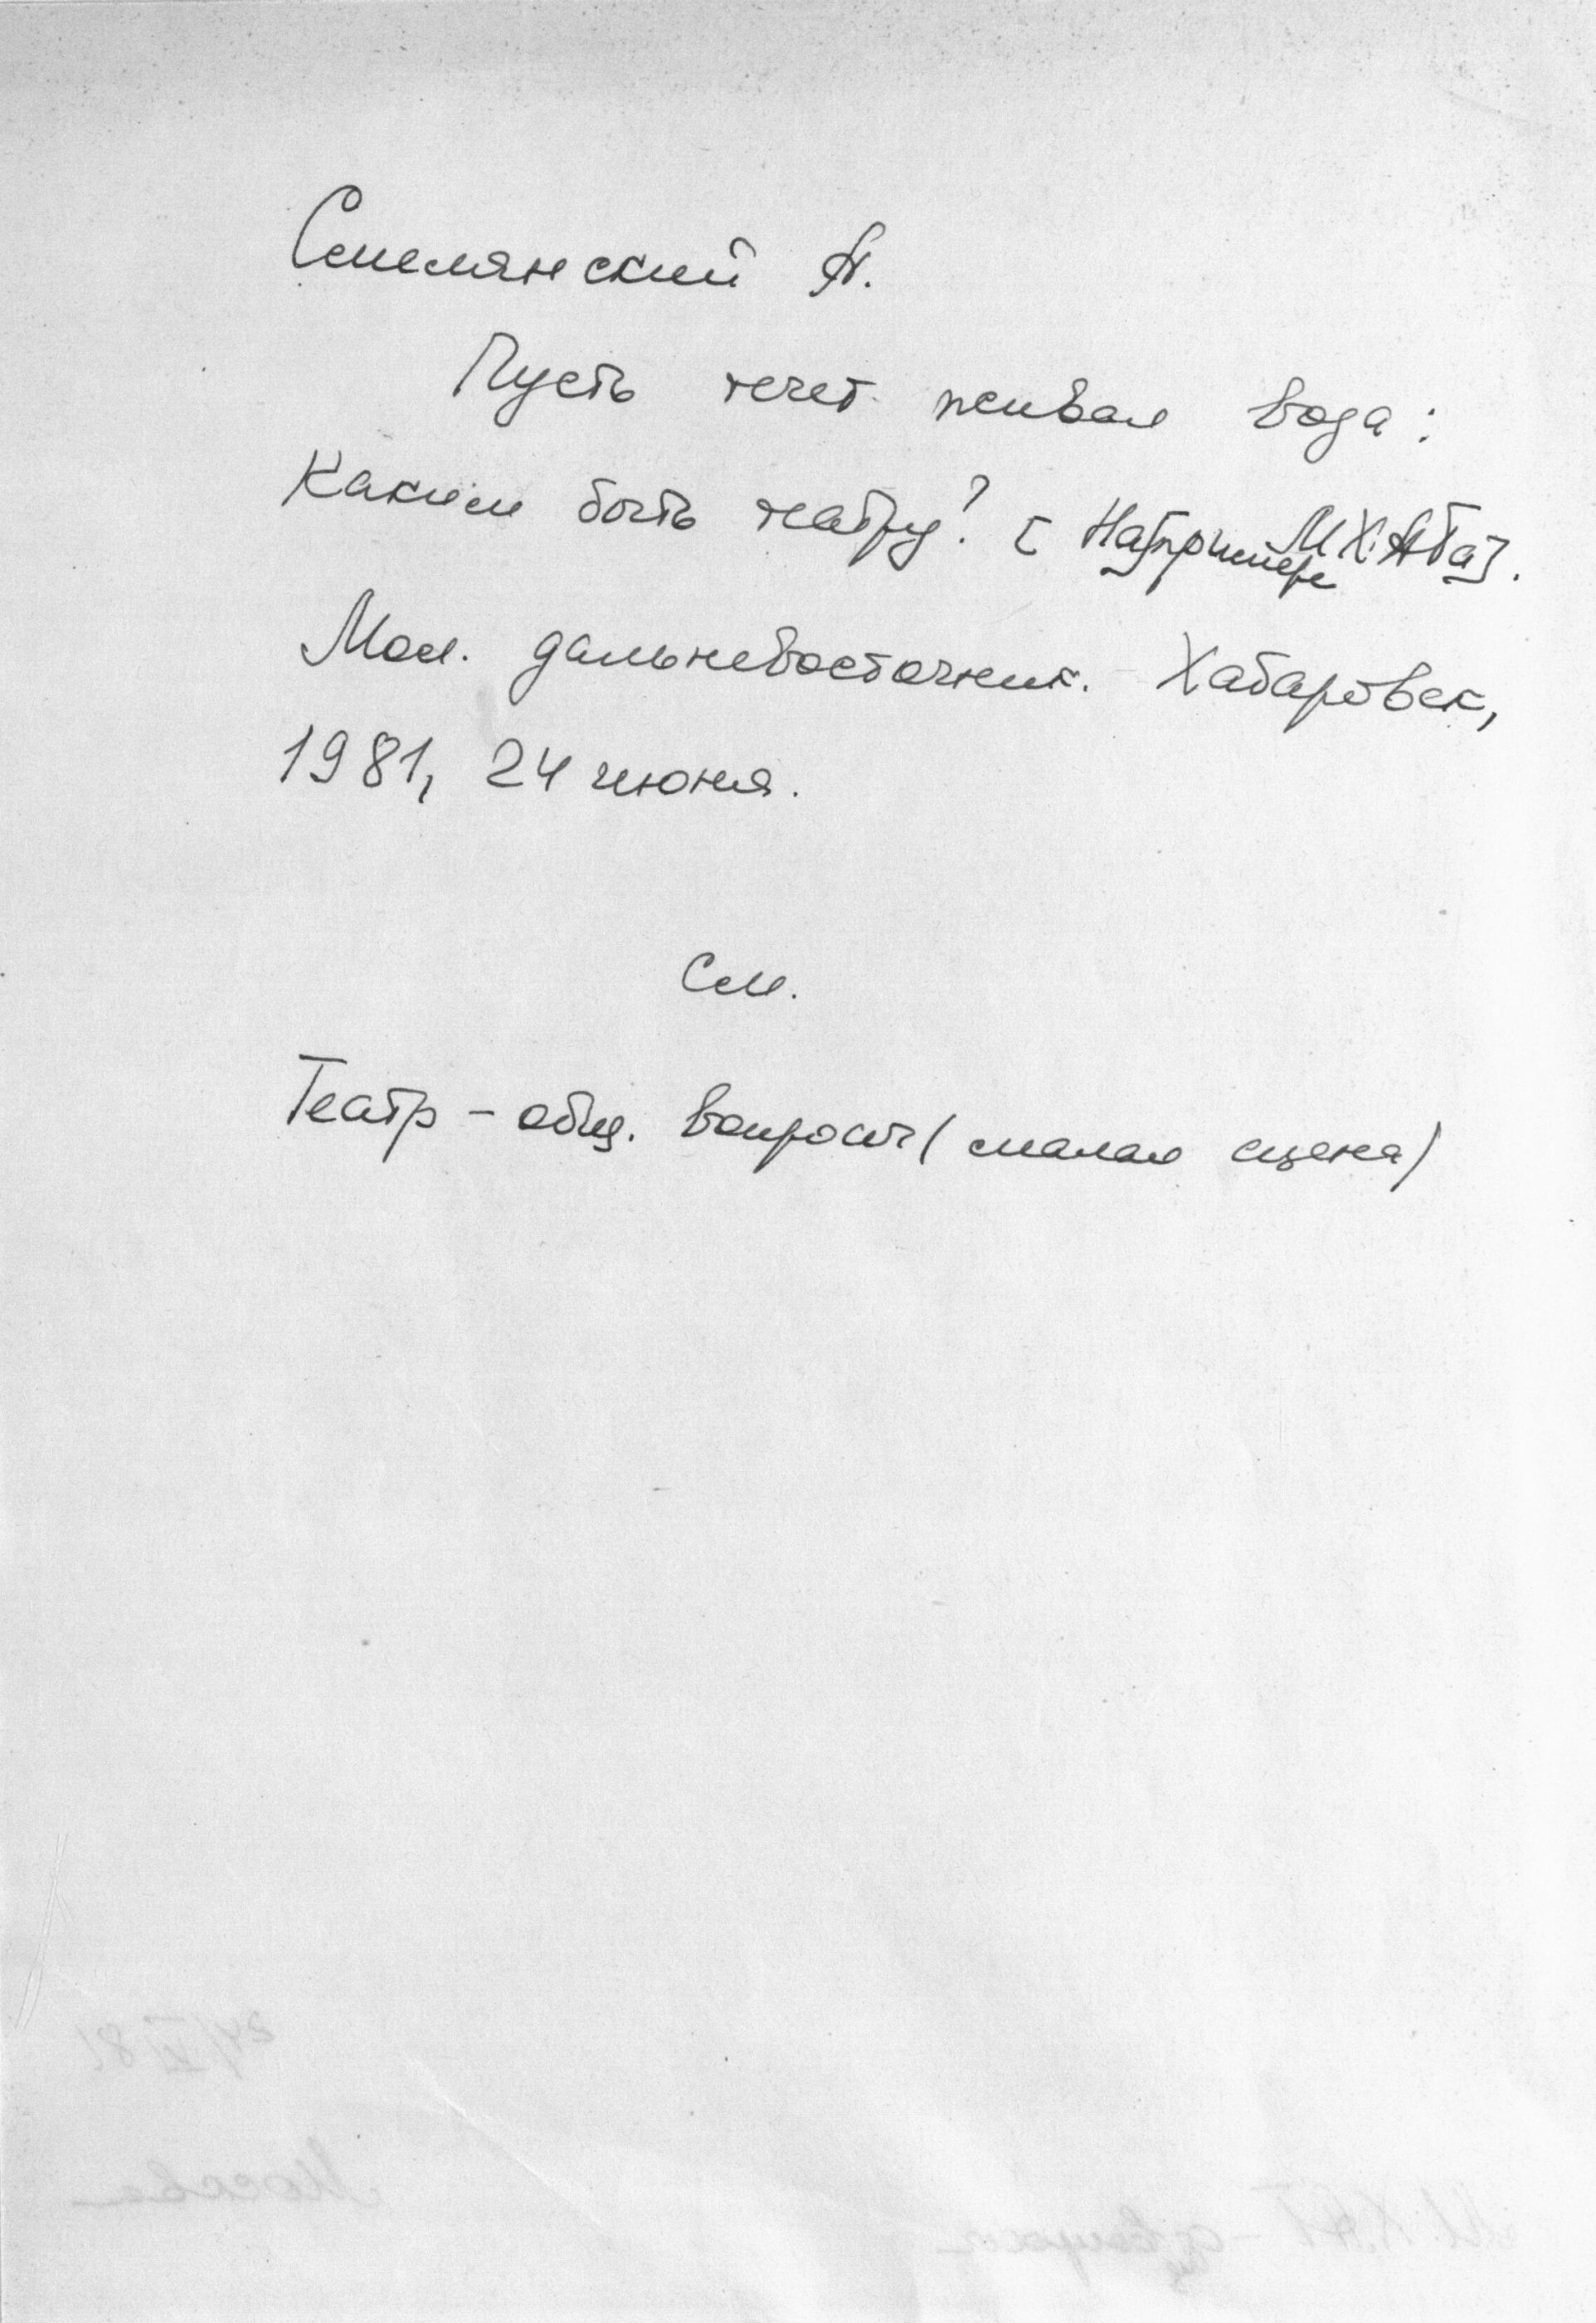 Смелянский А.
Пусть течет живая вода:
Каким быть театру? [На примере МХАТа].
Мол. дальневосточник. Хабаровск,
1981, 24 июня.
См.
Театр - общ. вопросы (малая сцена)
24/VI 81
Москва
МХАТ -